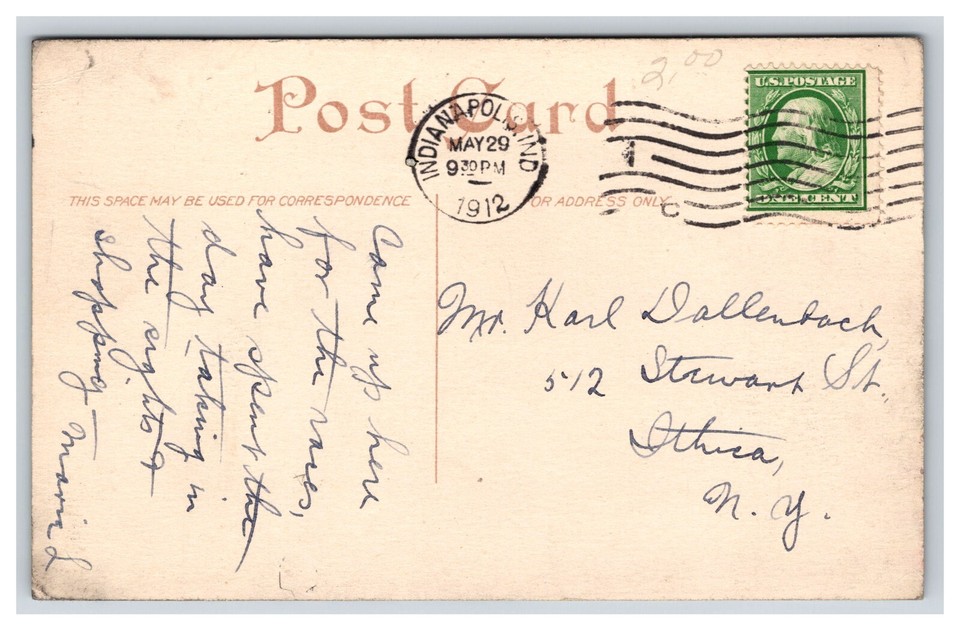 2.00
Post Card
U.S. POSTAGE
ONE CENT
INDIANAPOLIS, IND
MAY 29
9 30 PM
1912
THIS SPACE MAY BE USED FOR CORRESPONDENCE
FOR ADDRESS ONLY
Came up here
for the races,
have spent the
day taking in
the sights &
shopping –
Maria L
Mr. Karl Dallenbach,
512 Stewart St.
Ithica,
N. Y.